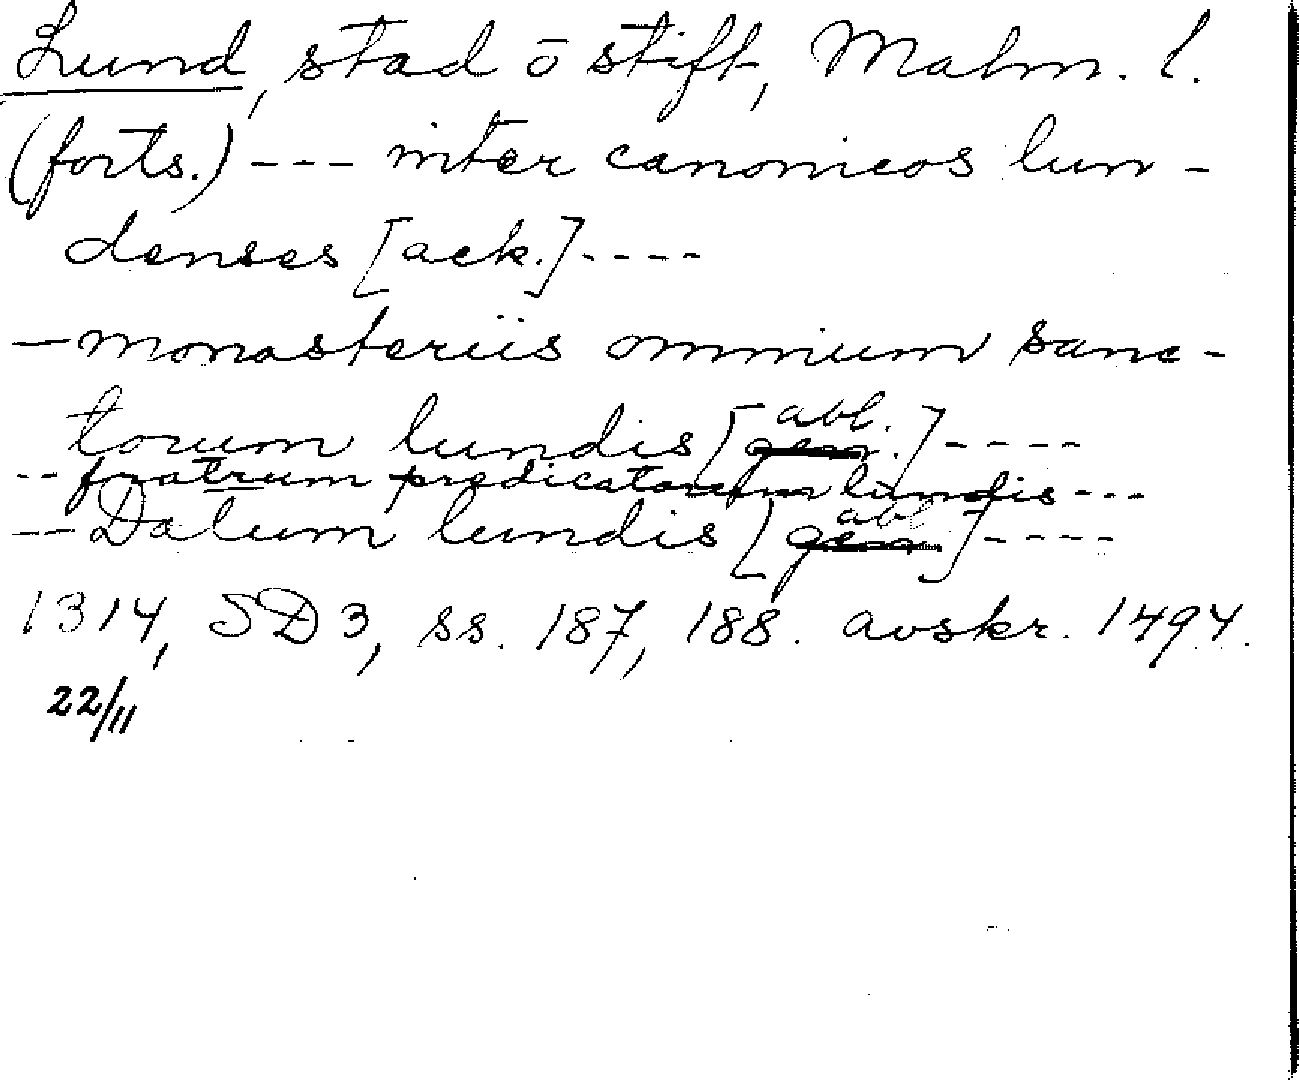 Lund, stad ō stift, Malm. l.
(forts.) --- inter canonicos lun-
denses [ack.] ----
— monasteriis omnium sanc-
torum lundis [abl.] ----
-- fratrum predicatorum lundis ---
— Datum lundis [abl] ----
1314, SD 3, ss. 187, 188. avskr. 1494.
22/11